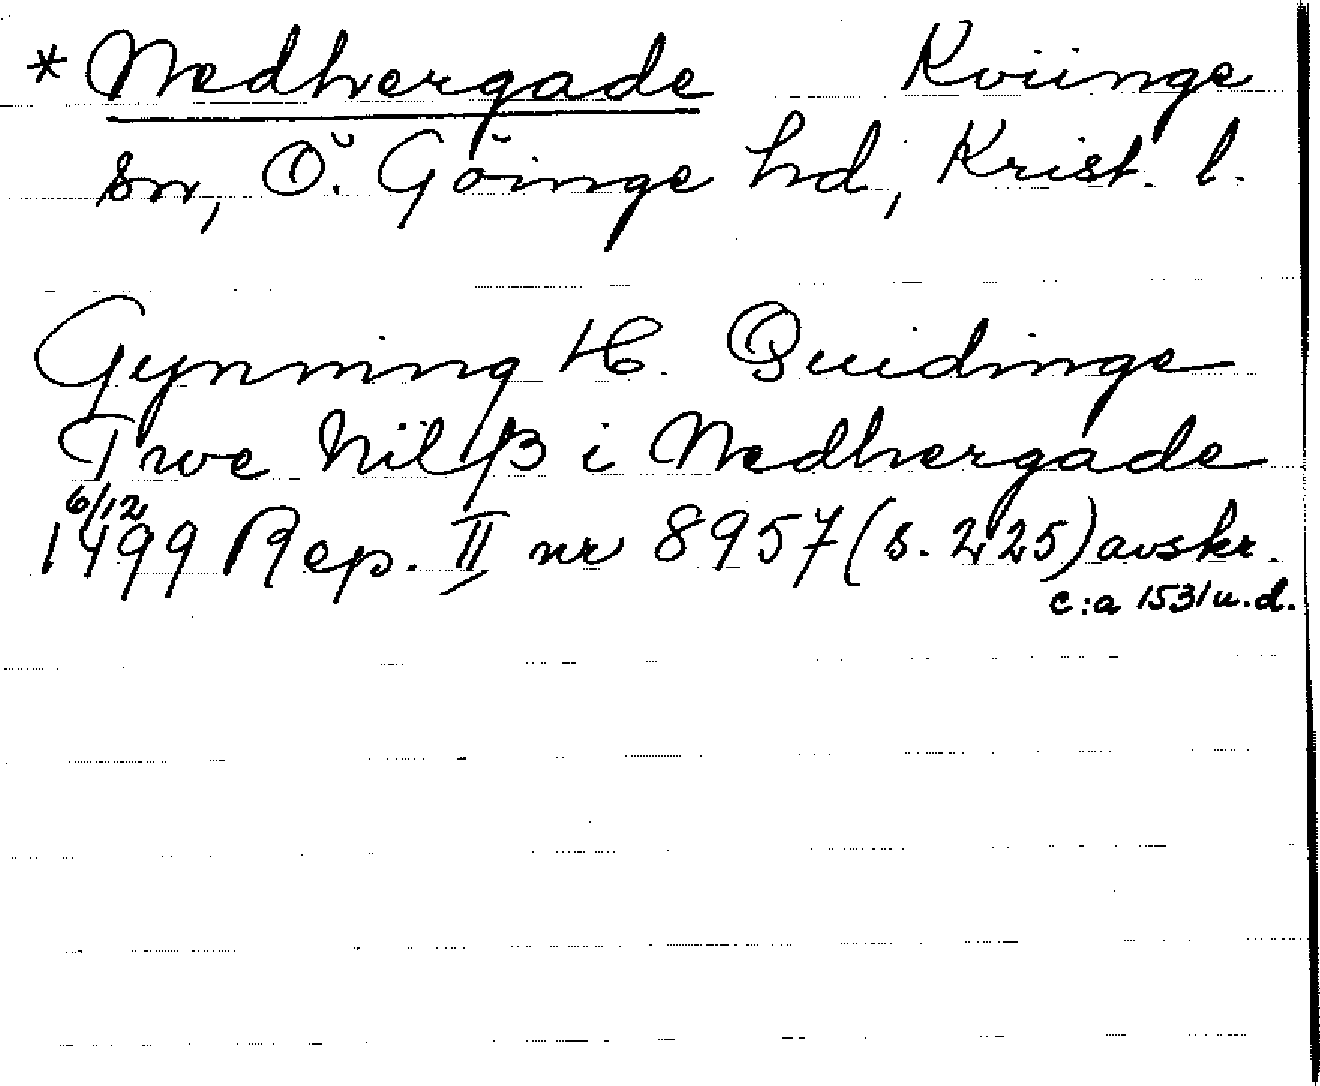 * Nedhergade Kviinge
sn, Ö. Göinge hd, Krist. l.
Gynning H. Quidinge
Twe Nilß i Nedhergade
6/12
1499 Rep. II nr 8957 (s. 225) avskr.
c:a 1531 u.d.